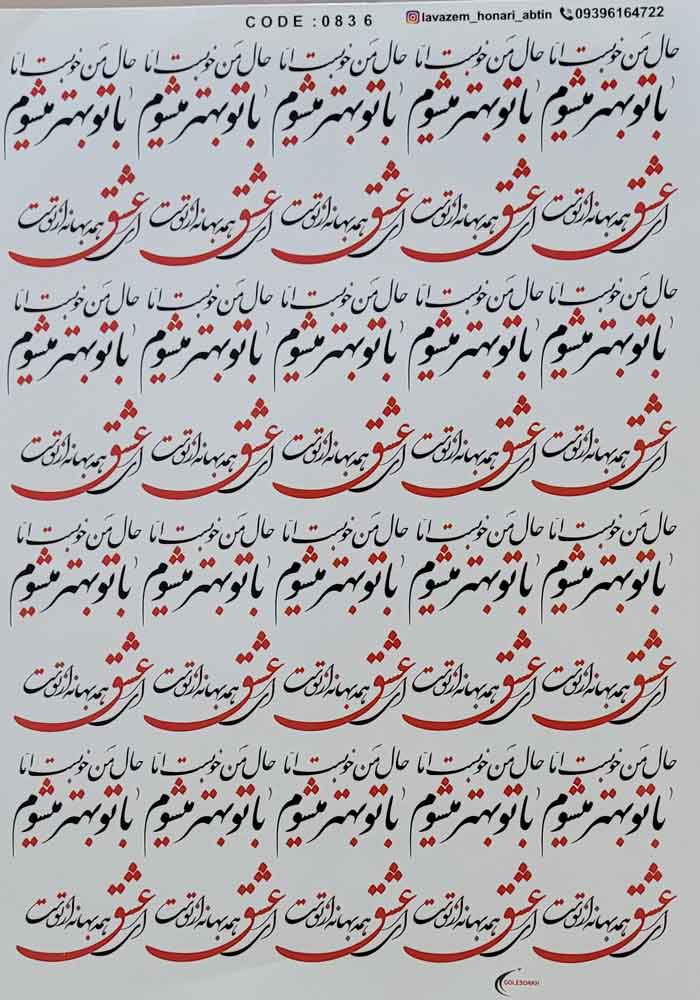 CODE:0836 lavazem_honari_abtin 09396164722
حال من خوبست اما حال من خوبست اما حال من خوبست اما حال من خوبست اما حال من خوبست اما
با تو بهتر میشوم با تو بهتر میشوم با تو بهتر میشوم با تو بهتر میشوم با تو بهتر میشوم
ای عشق همه بهانه از توست ای عشق همه بهانه از توست ای عشق همه بهانه از توست ای عشق همه بهانه از توست ای عشق همه بهانه از توست
حال من خوبست اما حال من خوبست اما حال من خوبست اما حال من خوبست اما حال من خوبست اما
با تو بهتر میشوم با تو بهتر میشوم با تو بهتر میشوم با تو بهتر میشوم با تو بهتر میشوم
ای عشق همه بهانه از توست ای عشق همه بهانه از توست ای عشق همه بهانه از توست ای عشق همه بهانه از توست ای عشق همه بهانه از توست
حال من خوبست اما حال من خوبست اما حال من خوبست اما حال من خوبست اما حال من خوبست اما
با تو بهتر میشوم با تو بهتر میشوم با تو بهتر میشوم با تو بهتر میشوم با تو بهتر میشوم
ای عشق همه بهانه از توست ای عشق همه بهانه از توست ای عشق همه بهانه از توست ای عشق همه بهانه از توست ای عشق همه بهانه از توست
حال من خوبست اما حال من خوبست اما حال من خوبست اما حال من خوبست اما حال من خوبست اما
با تو بهتر میشوم با تو بهتر میشوم با تو بهتر میشوم با تو بهتر میشوم با تو بهتر میشوم
ای عشق همه بهانه از توست ای عشق همه بهانه از توست ای عشق همه بهانه از توست ای عشق همه بهانه از توست ای عشق همه بهانه از توست
GOLESORKH